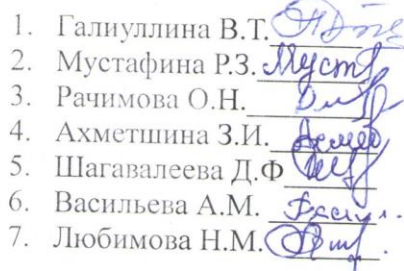 1. Галиуллина В.Т.
2. Мустафина Р.З.
3. Рачимова О.Н.
4. Ахметшина З.И.
5. Шагавалеева Д.Ф
6. Васильева А.М.
7. Любимова Н.М.